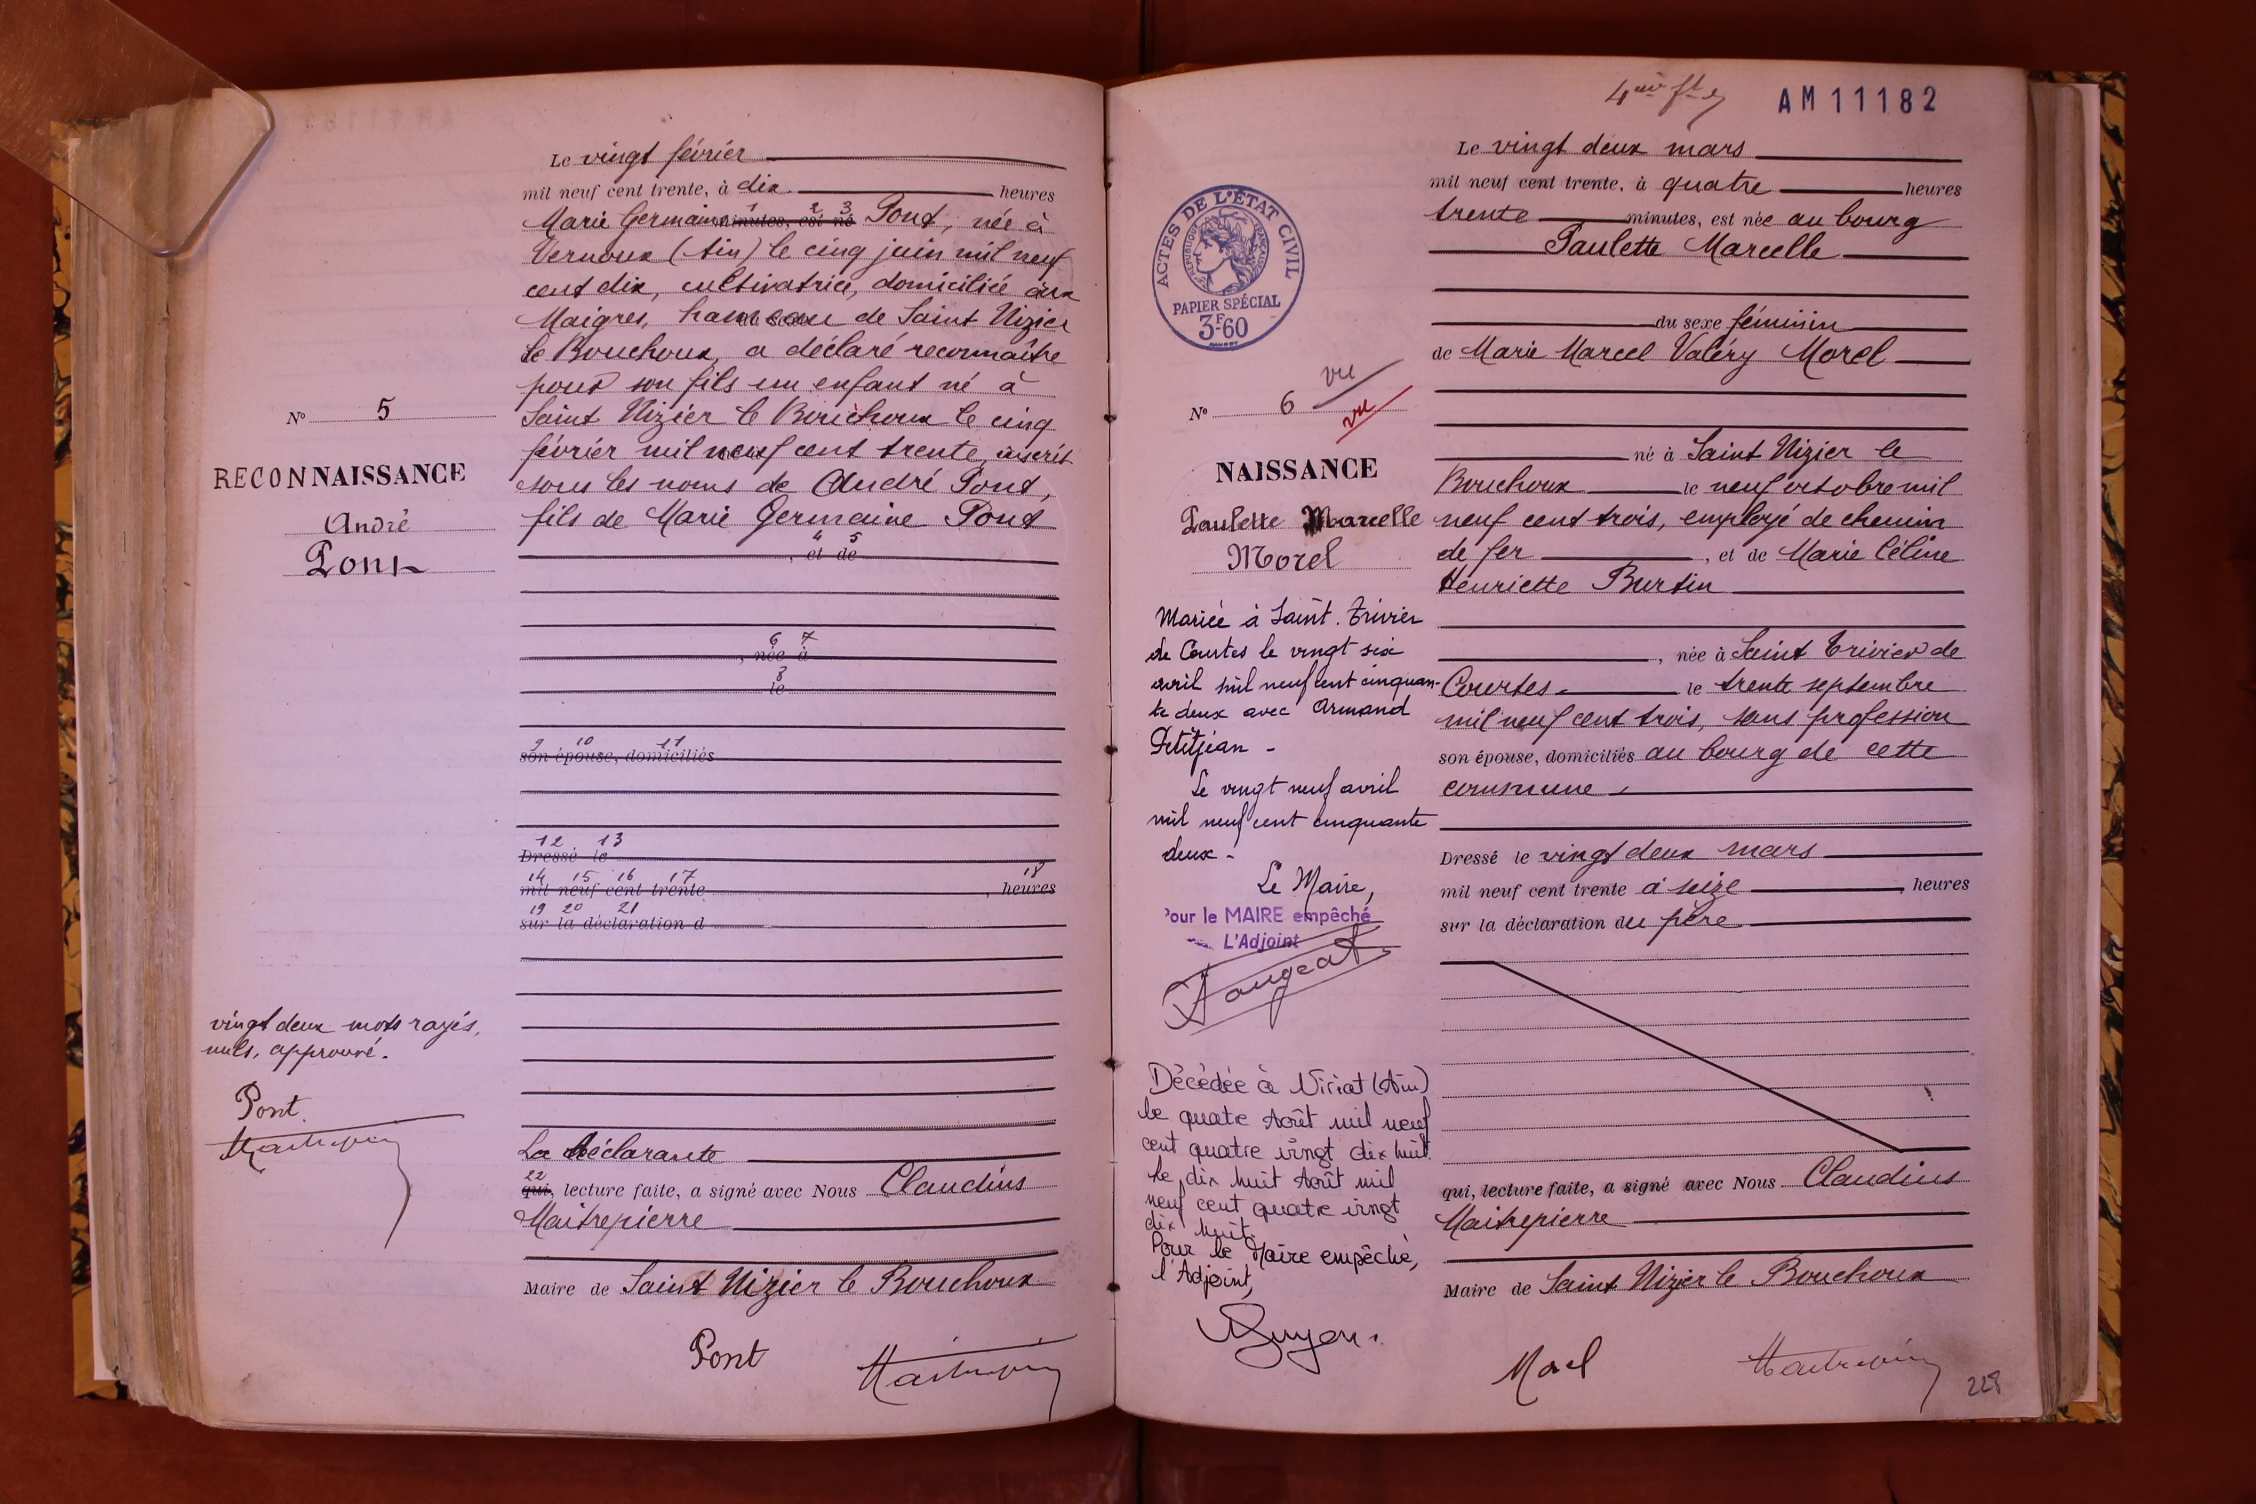 Le vingt février
mil neuf cent trente, à dix heures
Marie Germaine minutes, est né Pont, née à
Vernoux (Ain) le cinq juin mil neuf
cent dix, cultivatrice, domiciliée aux
Maigres, hameau de Saint Nizier
le Bouchoux, a déclaré reconnaître
pour son fils un enfant né à
Saint Nizier le Bouchoux le cinq
février mil neuf cent trente, inscrit
sous les noms de André Pont,
fils de Marie Germaine Pont
4 5
, et de
6 7
, née à
8
le
9 10 11
son épouse, domiciliés
12 13
Dressé le
14 15 16 17 18
mil neuf cent trente , heures
19 20 21
sur la déclaration d
La déclarante
22
qui, lecture faite, a signé avec Nous Claudius
Maitrepierre
Maire de Saint Nizier le Bouchoux
Pont
Maitrepierre
N° 5
RECONNAISSANCE
André
Pont
vingt deux mots rayés,
nuls, approuvé.
Pont
Maitrepierre
AM11182
ACTES DE L'ETAT CIVIL
RÉPUBLIQUE FRANÇAISE
PAPIER SPÉCIAL
3F60
N° 6
vu
vu
NAISSANCE
Paulette Marcelle
Morel
Mariée à Saint-Trivier
de Courtes le vingt six
avril mil neuf cent cinquan-
te deux avec Armand
Petitjean -
Le vingt neuf avril
mil neuf cent cinquante
deux -
Le Maire,
Pour le MAIRE empêché
L'Adjoint
Décédée à Viriat (Ain)
le quatre Août mil neuf
cent quatre vingt dix huit.
Le dix huit Août mil
neuf cent quatre vingt
dix huit.
Pour le Maire empêché,
l'Adjoint,
Le vingt deux mars
mil neuf cent trente, à quatre heures
trente minutes, est née au bourg
Paulette Marcelle
du sexe féminin
de Marie Marcel Valéry Morel
né à Saint Nizier le
Bouchoux le neuf octobre mil
neuf cent trois, employé de chemin
de fer , et de Marie Céline
Henriette Burtin
, née à Saint Trivier de
Courtes le trente septembre
mil neuf cent trois, sans profession
son épouse, domiciliés au bourg de cette
commune
Dressé le vingt deux mars
mil neuf cent trente à seize , heures
sur la déclaration du père
qui, lecture faite, a signé avec Nous Claudius
Maitrepierre
Maire de Saint Nizier le Bouchoux
Morel
Maitrepierre
228